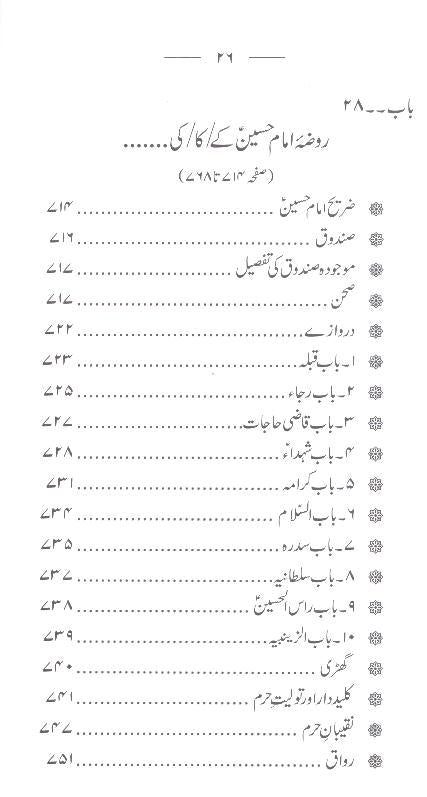 ۲۶
باب۔۔۲۸
روضۂ امام حسینؑ کے/کا/کی.......
(صفحہ ۷۱۴ تا ۷۶۸)
ضریح امام حسینؑ ۷۱۴
صندوق ۷۱۶
موجودہ صندوق کی تفصیل ۷۱۷
صحن ۷۱۷
دروازے ۷۲۲
۱۔باب قبلہ ۷۲۳
۲۔باب رجاء ۷۲۵
۳۔باب قاضی حاجات ۷۲۷
۴۔باب شہداءؑ ۷۲۸
۵۔باب کرامہ ۷۳۱
۶۔باب السّلام ۷۳۴
۷۔باب سدرہ ۷۳۵
۸۔باب سلطانیہ ۷۳۷
۹۔باب راس الحسینؑ ۷۳۸
۱۰۔باب الزینبیہ ۷۳۹
گھڑی ۷۴۰
کلیددار اور تولیتِ حرم ۷۴۱
نقیبانِ حرم ۷۴۷
رواق ۷۵۱